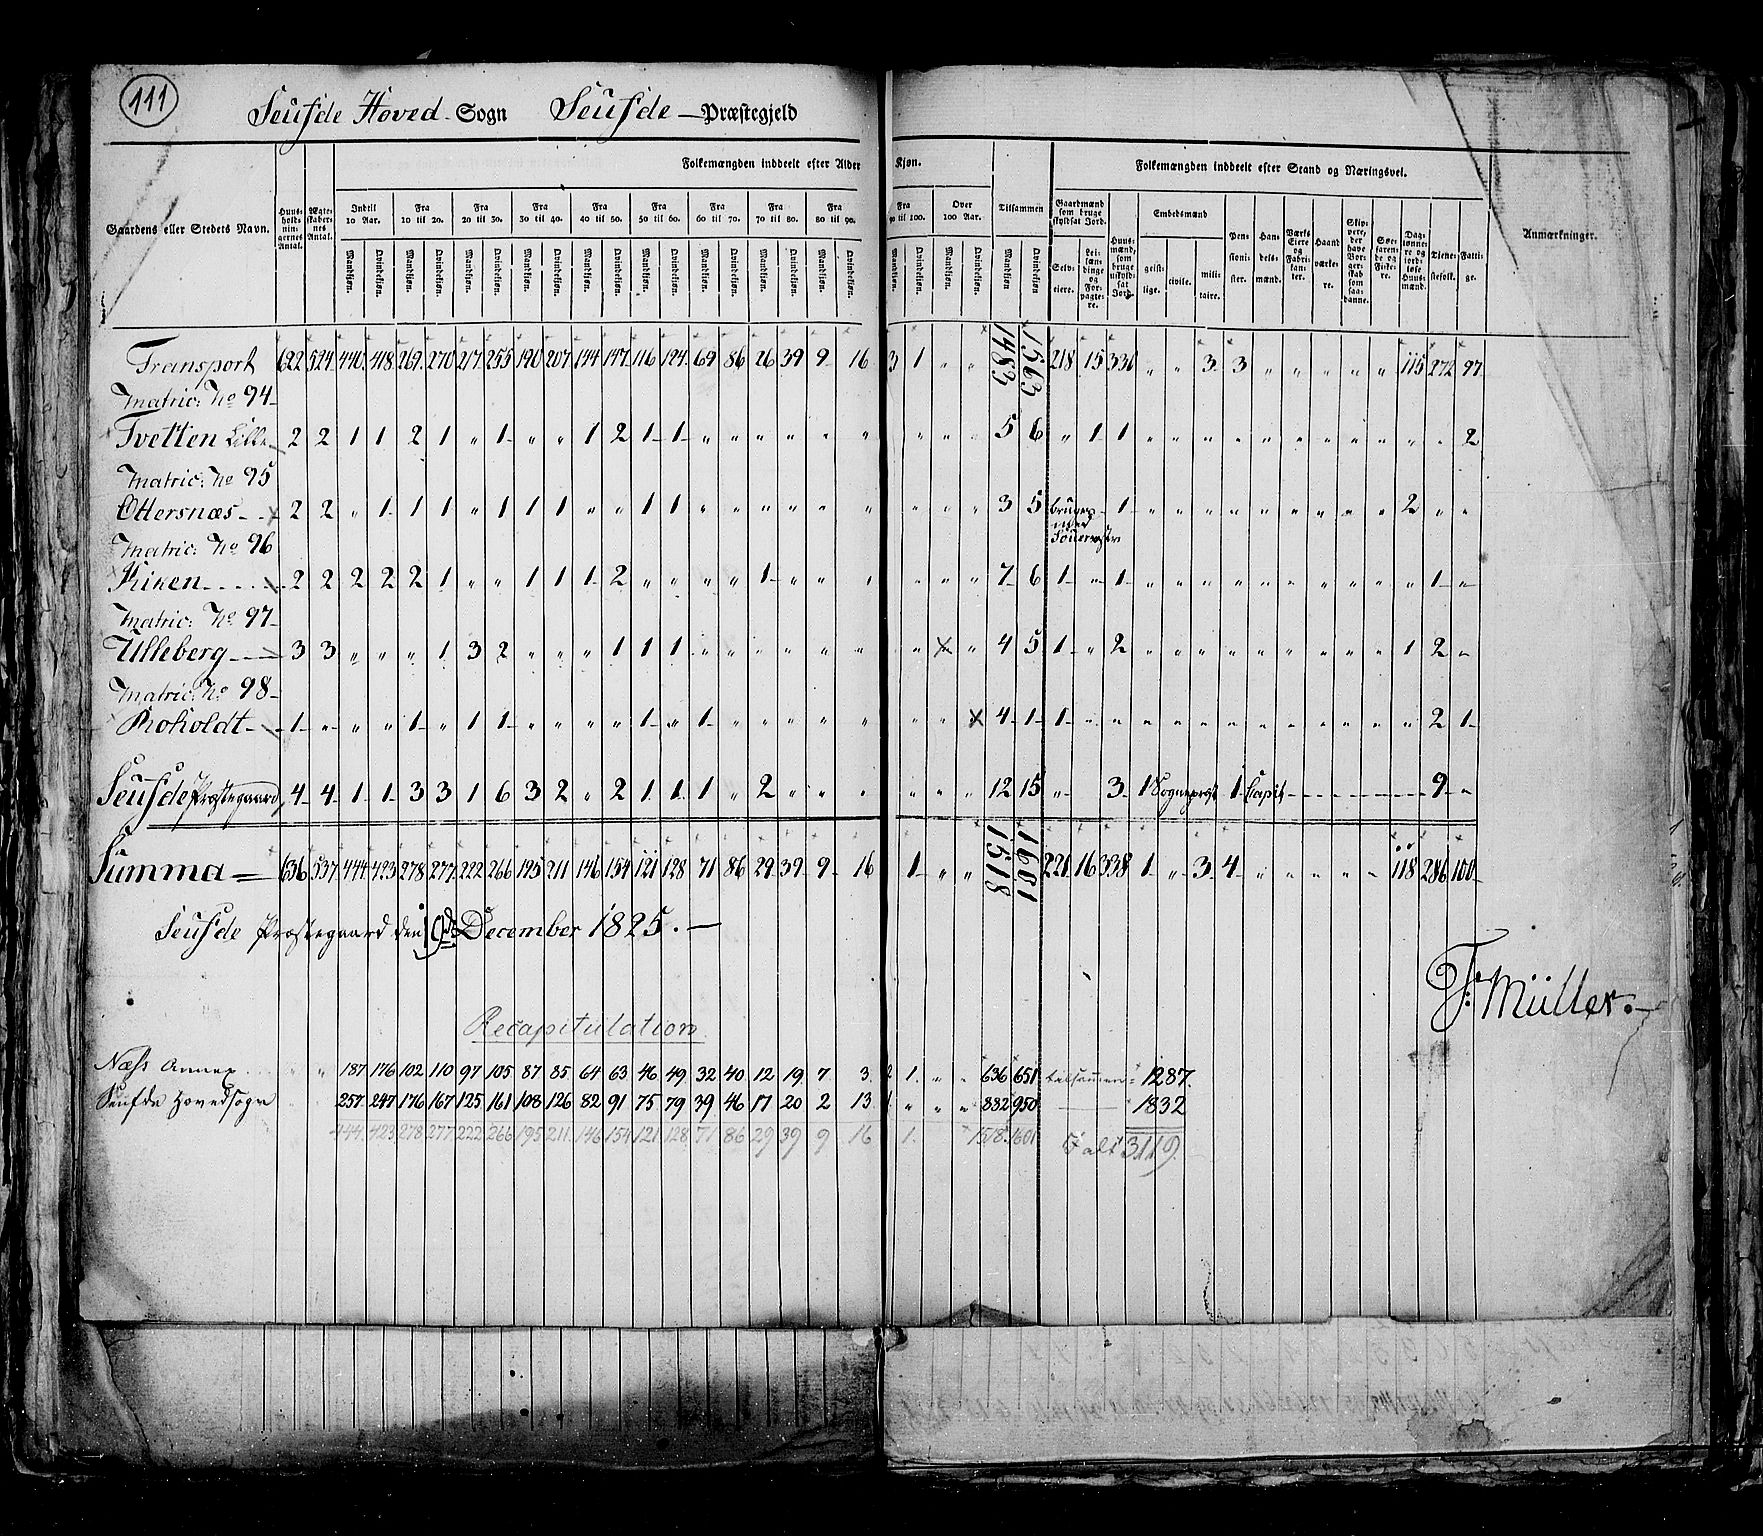 111
Seufde Hoved Sogn Seufde Præstegjeld
Folkemængden inddeelt efter Alder Kjøn. Folkemængden inddeelt efter Stand og Næringsvei.
Gaardens eller Stedets Navn. Huusholdningernes Antal. Ægteskabernes Antal. Indtil 10 Aar. Fra 10 til 20. Fra 20 til 30. Fra 30 til 40. Fra 40 til 50. Fra 50 til 60. Fra 60 til 70. Fra 70 til 80. Fra 80 til 90. Fra 90 til 100. Over 100 Aar. Tilsammen Gaardmænd som bruge skyldsat Jord. Huusmænd, som bruge uskyldsat Jord. Embedsmænd Pensionister. Handelsmænd. Værks Eiere og Fabrikanter. Haandværkere. Skippere, der have Borgerskab som saadanne. Søefarende og Fiskere. Daglønnere og jordløse Huusmænd. Tjenestefolk. Fattige. Anmærkninger.
Mandkjøn. Qvindekjøn. Mandkjøn. Qvindekjøn. Mandkjøn. Qvindekjøn. Mandkjøn. Qvindekjøn. Mandkjøn. Qvindekjøn. Mandkjøn. Qvindekjøn. Mandkjøn. Qvindekjøn. Mandkjøn. Qvindekjøn. Mandkjøn. Qvindekjøn. Mandkjøn. Qvindekjøn. Mandkjøn. Qvindekjøn. Mandkjøn. Qvindekjøn. Selveiere. Leilændinge og Forpagtere. geistlige. civile. militaire.
Transport 622 524 440 418 269 270 217 255 190 207 144 147 116 124 69 86 26 39 9 16 3 1 " " 1483 1563 218 15 331 " " 3 3 " " " " " 115 272 97
Matric: No 94
Tvetten Lille 2 2 1 1 2 1 " 1 " " 1 2 1 1 " " " " " " " " " 5 6 " 1 1 " " " " " " " " " " " 2
Matric: No 95
Ottersnæs 2 2 " 1 1 1 " 1 1 1 " " 1 1 " " " " " " " " " 3 5 bruges under 1 " " " " " " " " " 2 " "
Matric: No 96
Kiken 2 2 2 2 2 1 " " 1 1 1 2 " " " " 1 " " " " " " 7 6 1 " 1 " " " " " " " " " " 1 "
Matric: No 97
Ulleberg 3 3 " " " 1 3 2 " " " 1 1 1 " " " " " " " × " 4 5 1 " 2 " " " " " " " " " 1 2 "
Matric: No 98
Roholdt 1 " " " 1 " 1 1 " " " " 1 " 1 " " " " " " " × 4 1 1 " " " " " " " " " " " " 2 1
Seufde Præstegaard 4 4 1 1 3 3 1 6 3 2 " 2 1 1 1 " 2 " " " " " " 12 15 " 3 1 Sogneprest 1 Capit 9 "
Summa 636 537 444 423 278 277 222 266 195 211 146 154 121 128 71 86 29 39 9 16 1 " " 1518 1601 221 16 338 1 " 3 4 " " " " " 118 286 100
Seufde Præstegaard den 19de December 1825.
F: Müller.
Recapitulation
Næss Annex 187 176 102 110 97 105 87 85 64 63 46 49 32 40 12 19 7 3 2 1 " " 636 651 tilsammen 1287.
Seufde Hovedsogn 257 247 176 167 125 161 108 126 82 91 75 79 39 46 17 20 2 13 1 " " " 882 950 1832
444 423 278 277 222 266 195 211 146 154 121 128 71 86 29 39 9 16 1 1518 1601 I alt 3119.